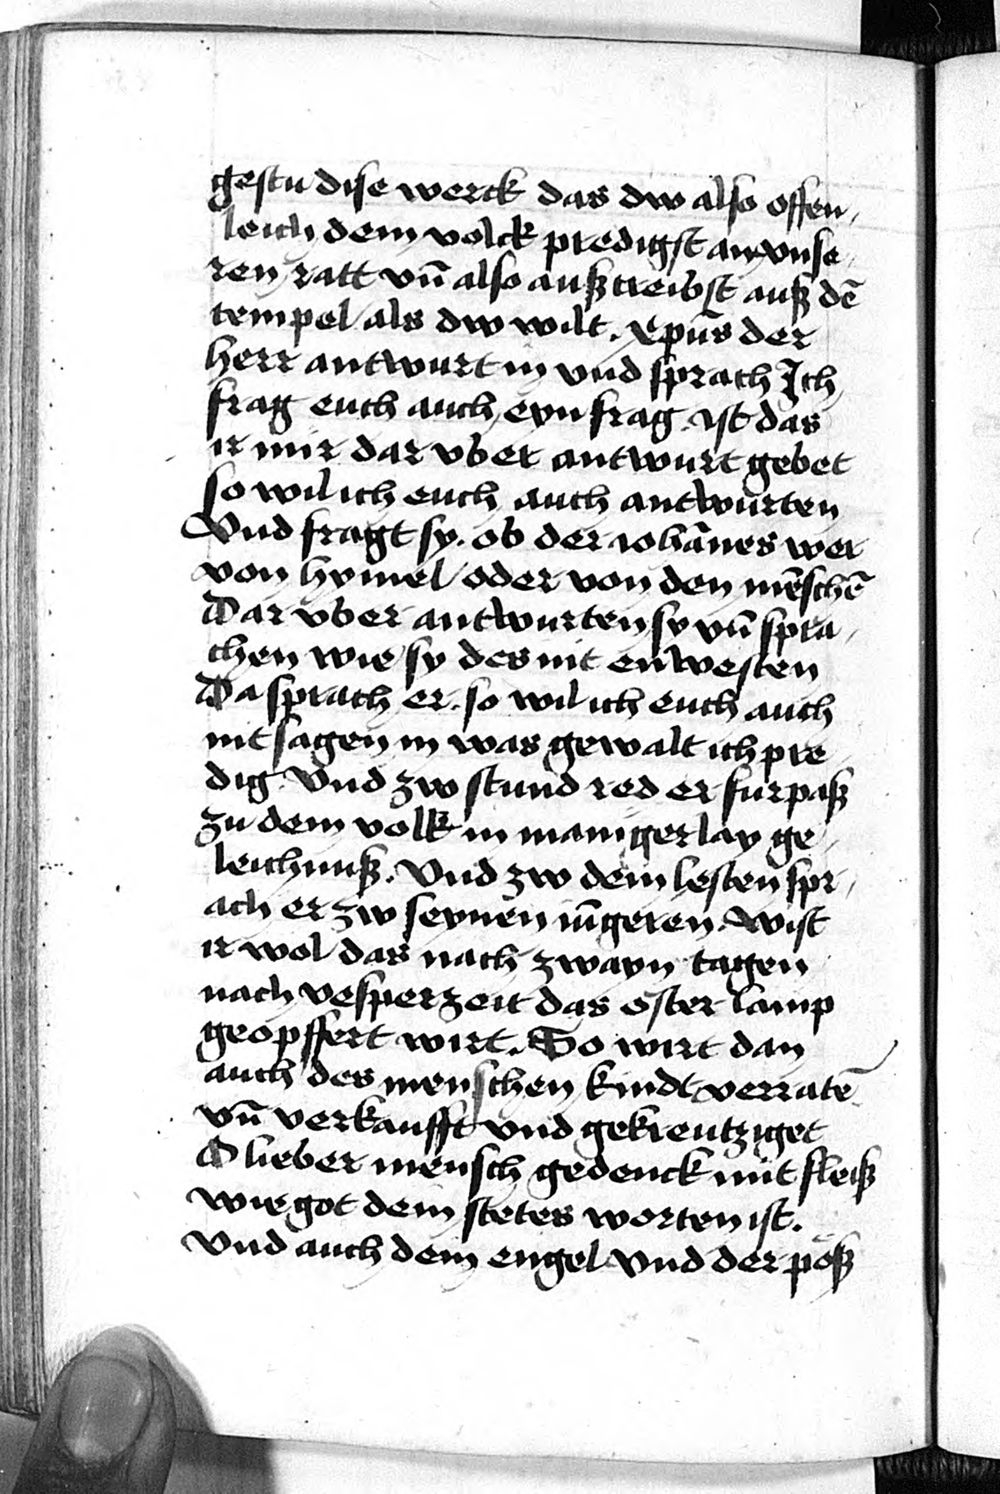 gestu dise werck das dw also offen,
leich dem volck predigst an vnse,
ren ratt vn̄ also außtreibst auß dē
tempel als dw wilt. xp̄us der
herr antwurt in vnd sprach Ich
frag euch auch eyn frag. ist das
ir mir dar vber antwurt gebet
so wil ich euch auch antwurten
Vnd fragt sy. ob der iohānes wer
von hymel oder von den mēschē
Dar vber antwurten sy vn̄ spra,
chen wie sy des nit enwesten
Da sprach er. so wil ich euch auch
nit sagen in was gewalt ich pre,
dig. Vnd zw stund red er furpaß
zu dem volk in maniger lay ge,
leichnuß. Vnd zw dem lesten spr,
ach er zw seynen iūgeren. Wist
ir wol das nach zwayn tagen
nach vesperzeit das oster lamp
geopffert wirt. So wirt dan
auch des menschen kindt verratē
vn̄ verkaufft vnd gekreutziget
O lieber mensch gedenck mit fleiß
wie got dein stetes worten ist.
Vnd auch dein engel vnd der pöß